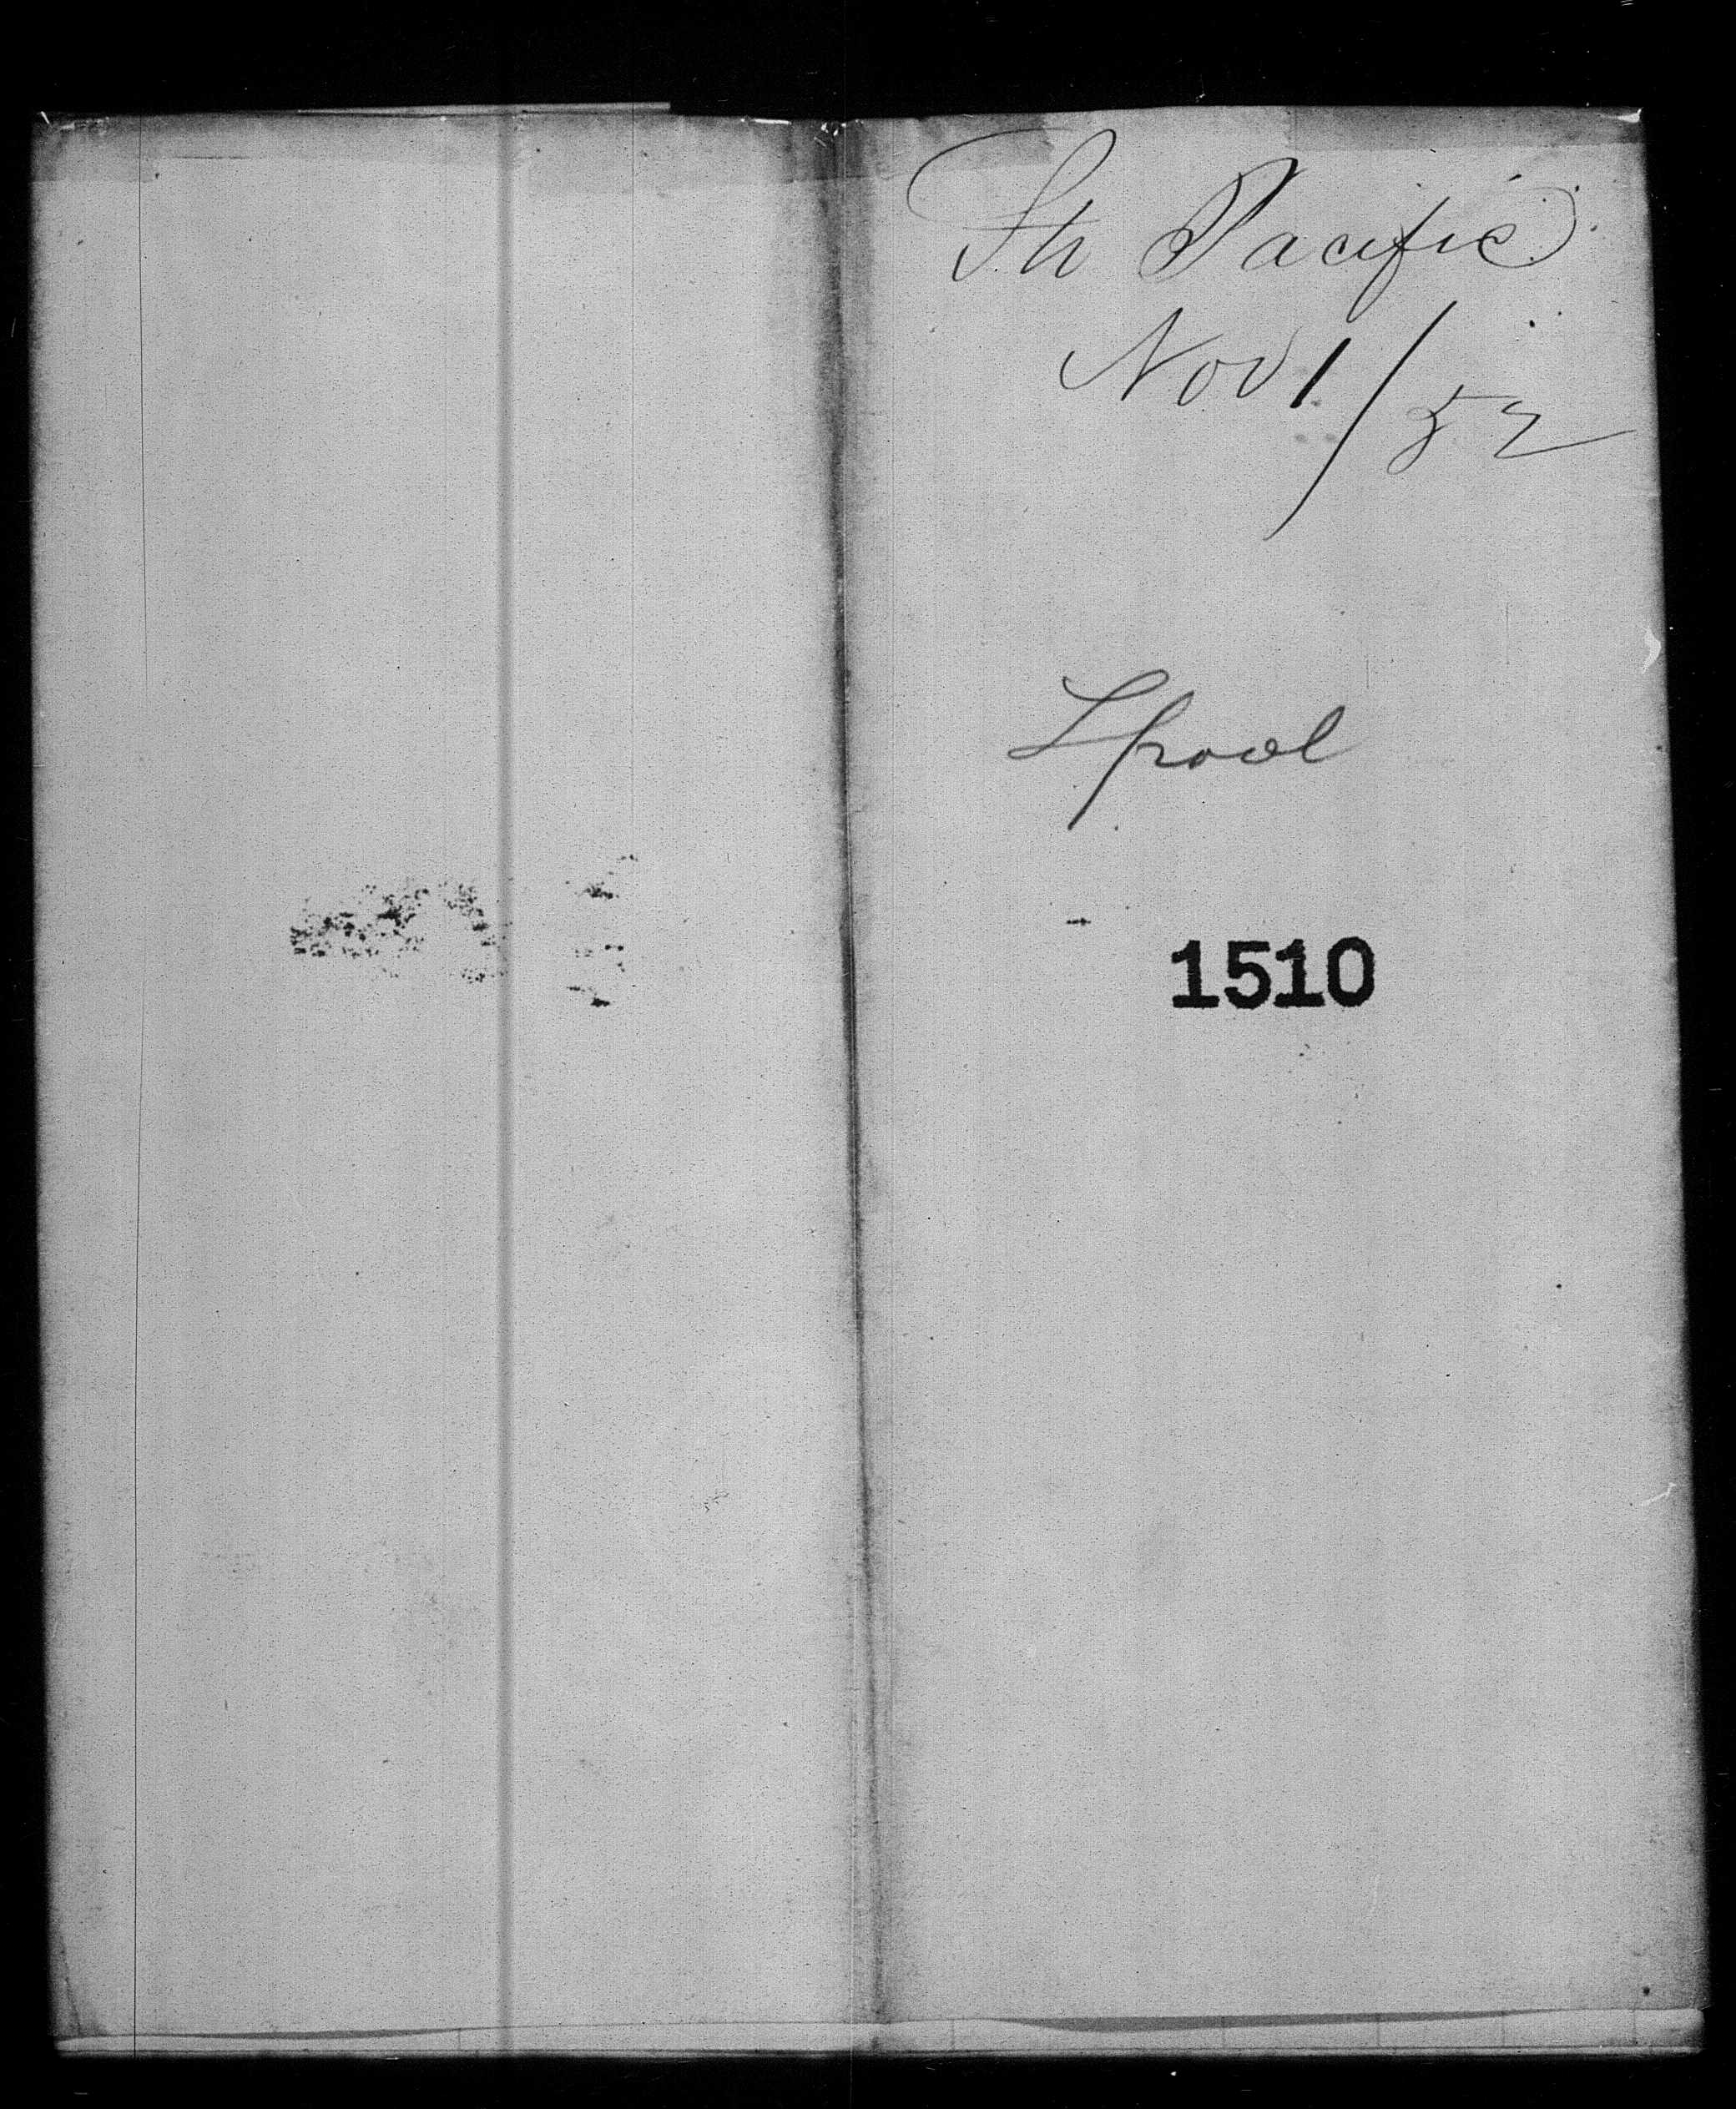 Str Pacific
Nov 1/52
Lpool
1510